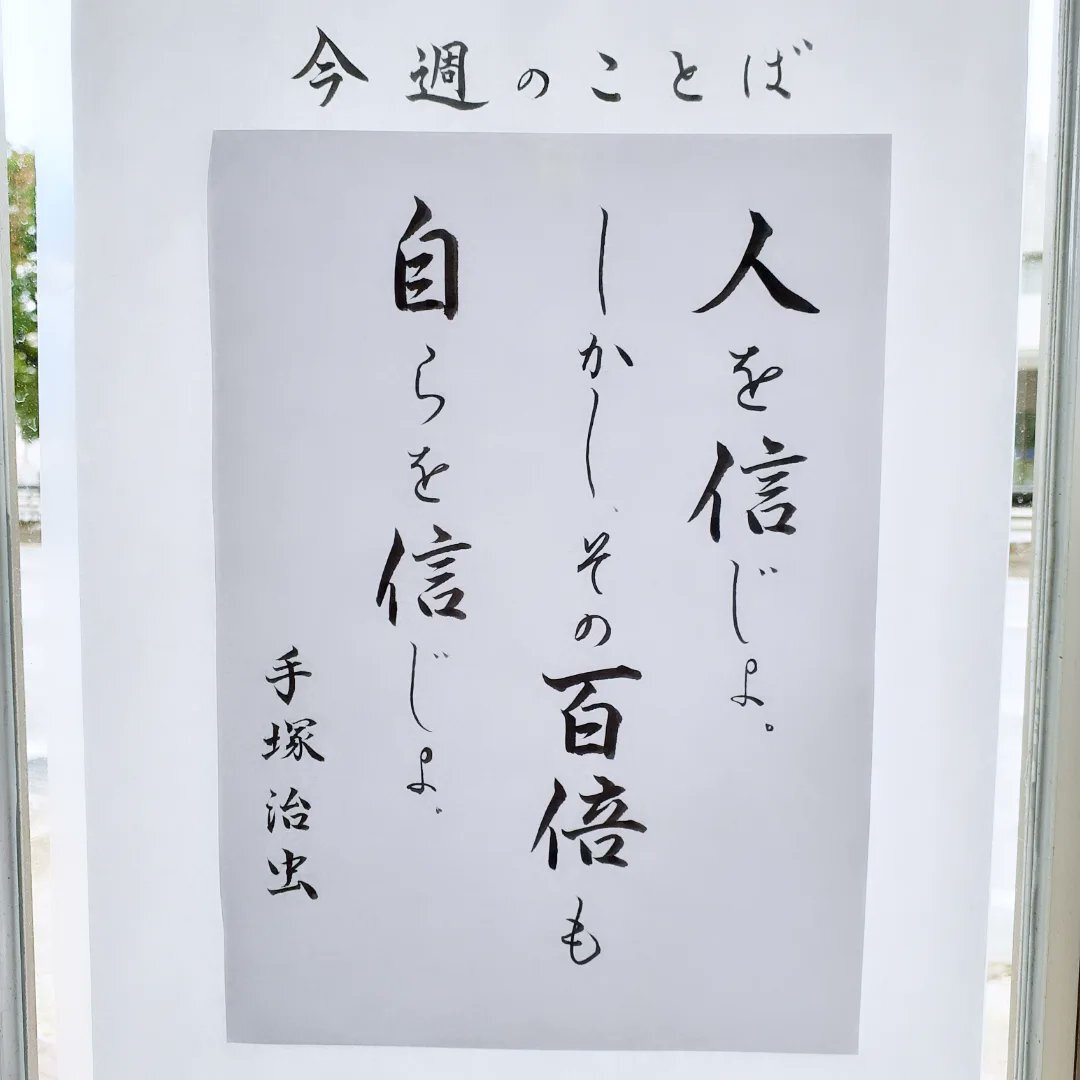 今週のことば
人を信じよ。
しかし、その百倍も
自らを信じよ。
手塚治虫